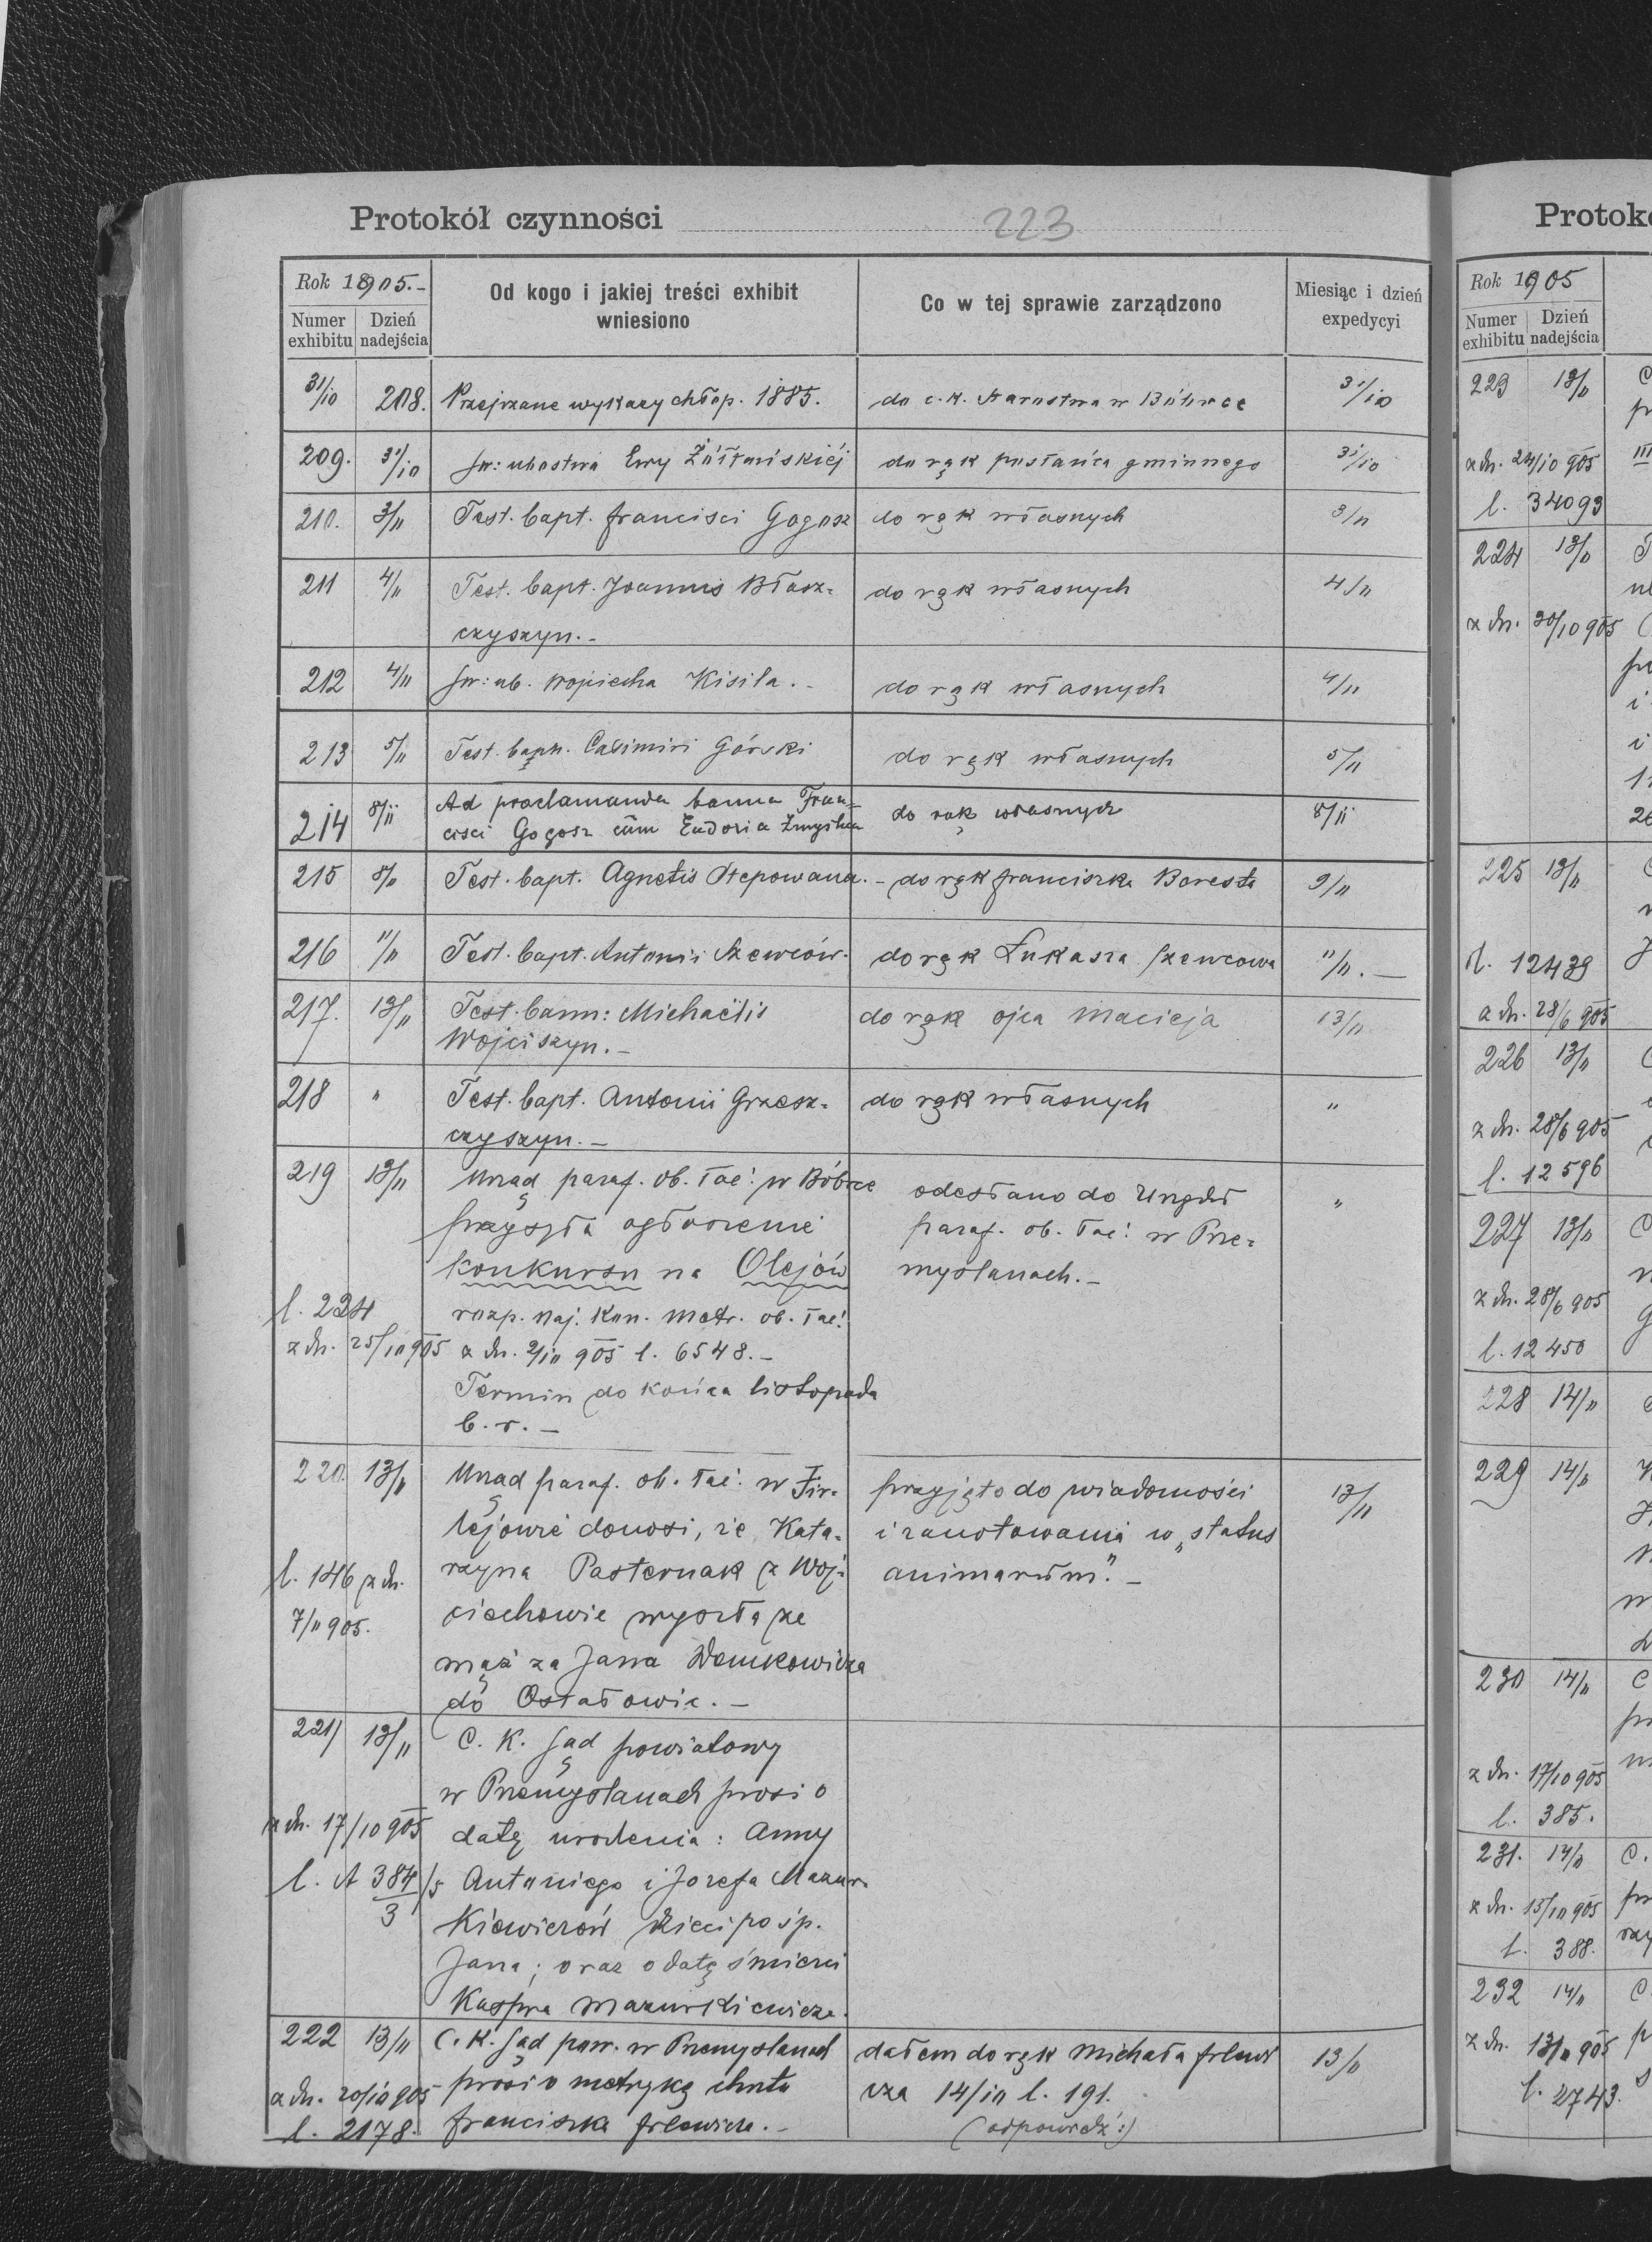 Protokół czynności 223
Rok 1905.-
Numer exhibitu
Dzień nadejścia
Od kogo i jakiej treści exhibit wniesiono
Co w tej sprawie zarządzono
Miesiąc i dzień expedycyi
31/10 208. Przejrzane wykazy chłop. 1885. do c. k. Starostwa w Bóbrce 31/10
209. 31/10 Św: ubóstwa Ewy Żółtańskiéj do rąk posłańca gminnego 31/10
210. 3/11 Test. bapt. Francisci Gogosz do rąk własnych 3/11
211 4/11 Test. bapt. Joannis Błasz- do rąk własnych 4/11
czyszyn.-
212 4/11 Św: ub. Wojciecha Kisiła.- do rąk własnych 4/11
213 5/11 Test. bapt. Casimiri Górski do rąk własnych 5/11
214 8/11 Ad proclamanda banna Fran- do rąk własnych 8/11
cisci Gogosz cum Eudoxia
215 8/11 Test. bapt. Agnetis Stepowana.- do rąk Franciszka Boresta 9/11
216 11/11 Test. bapt. Antonii Szewców. do rąk Łukasza Szewcowa 11/11.-
217. 13/11 Test. bann: Michaëlis do rąk ojca Macieja 13/11
Wojciszyn.-
218 " Test. bapt. Antonii Grzesz- do rąk własnych "
czyszyn.-
219 13/11 Urząd paraf. ob. łać: w Bóbrce odesłano do Urzędu "
przysyła ogłoszenie paraf. ob. łać: w Prze-
konkursu na Olejów myślanach.-
l. 224 rozp. Naj. Kon. metr. ob. łać:
z dn. 25/10 905 z dn. 2/10 905 l. 6548.-
Termin do końca listopada
b. r.-
220 13/11 Urząd paraf. ob. łać: w Fir- przyjęto do wiadomości 13/11
lejowie donosi, że Kata- i zanotowania w „status
l. 146 z dn. rzyna Pasternak z Woj- animarum".-
7/11 905. ciechowie wyszła ze
mąż za Jana Demkowicza
do Ostałowic.-
221 13/11 C. K. Sąd powiatowy
w Przemyślanach prosi o
z dn. 17/10 905 datę urodzenia: Anny
l. A 384/3 /5 Antoniego i Józefa Mazur-
kiewiczów dzieci po śp.
Jana; oraz o datę śmierci
Kaspra Mazurkiewicza.
222 13/11 C. K. Sąd pow. w Przemyślanach dałem do rąk Michała 13/11
z dn. 20/10 905 prosi o metrykę chrztu cza 14/10 l. 191.
l. 2178. Franciszka (odpowiedź:)
Protok
Rok 1905
Numer exhibitu
Dzień nadejścia
223 13/11
z dn. 24/10 905 III
l. 34093
224 13/11
z dn. 30/10 905
225 13/11
l. 12439
z dn. 28/6 905
226 13/11
z dn. 28/6 905
l. 12596
227 13/11
z dn. 28/6 905
l. 12450
228 14/11
229 14/11
230 14/11
z dn. 17/10 905
l. 385.
231. 14/11
z dn. 15/10 905
l. 388.
232 14/11
z dn. 13/11 905
l. 2743.